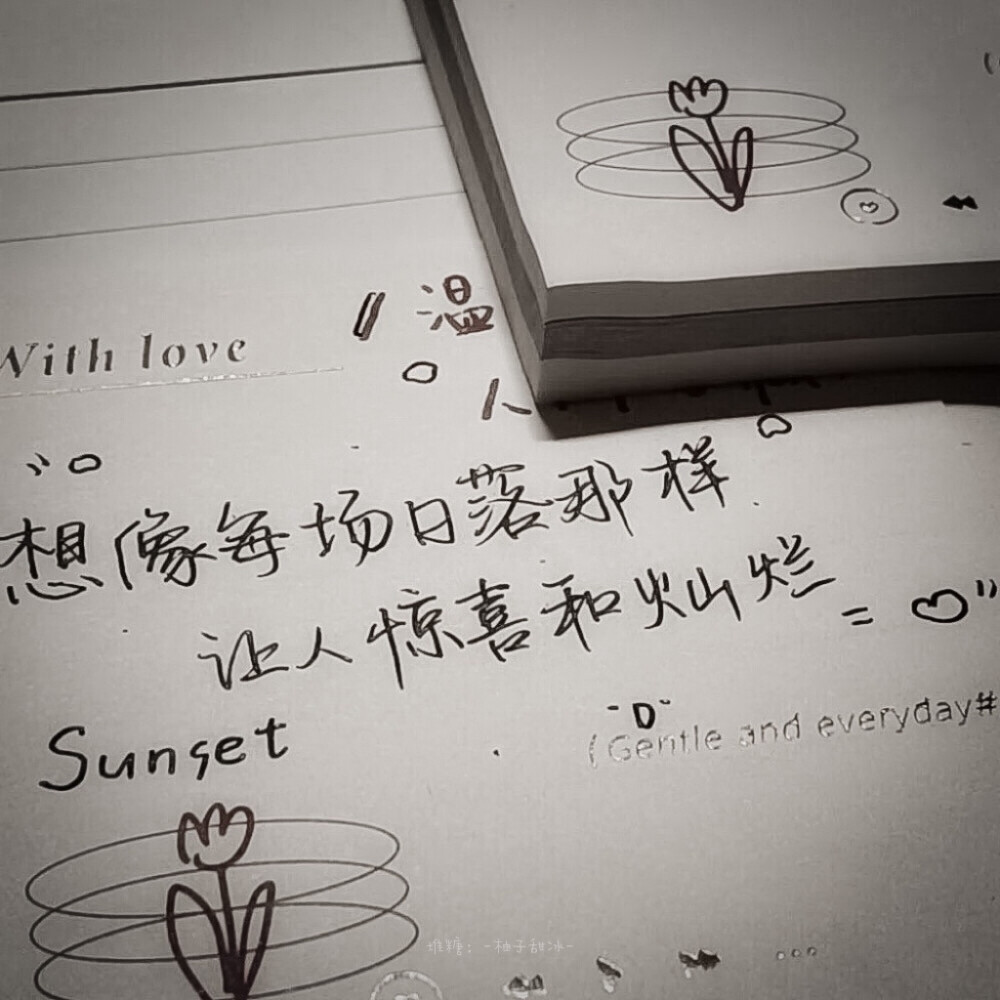 With love
温
人
想像每场日落那样
让人惊喜和灿烂
Sunset
(Gentle and everyday#
堆糖：-柚子甜冰-